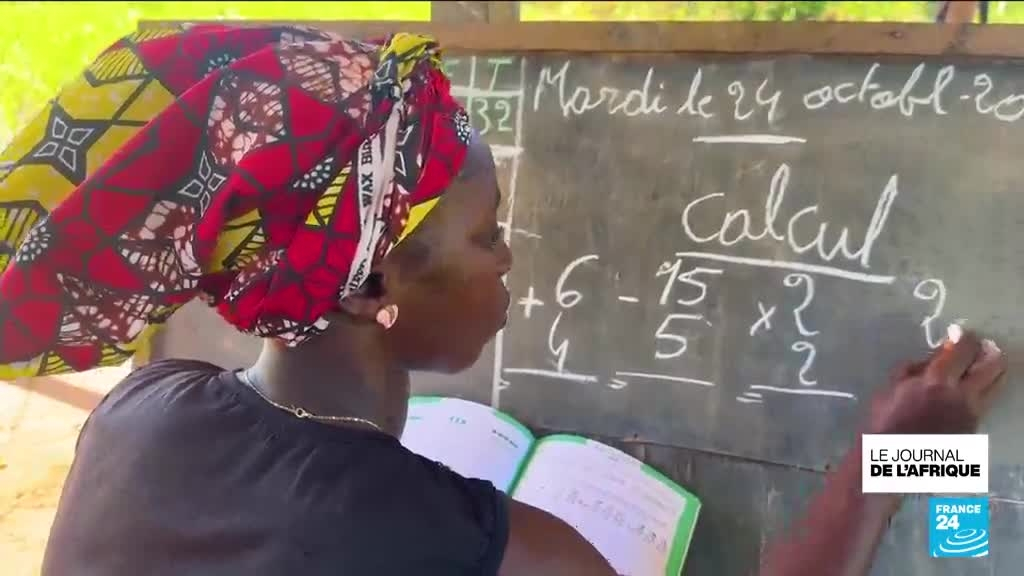 Mardi le 24 octobl-20
32
calcul
+ 6 - 15 × 2 2
4 5 2 2
WAX BI
LE JOURNAL
DE L'AFRIQUE
FRANCE
24